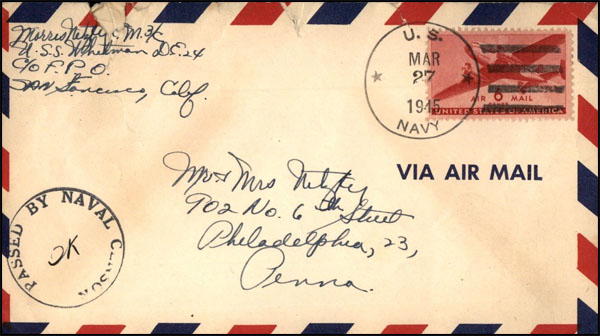 Morris Netzky M3/c
U.S.S. Whitman D.E. 24
C/o F.P.O.
San Francisco, Calif.
U. S.
MAR
27
1945
NAVY
6
AIR MAIL
UNITED STATES OF AMERICA
VIA AIR MAIL
Mr & Mrs Netzky
902 No. 6th Street
Philadelphia, 23,
Penna.
PASSED BY NAVAL CENSOR
OK